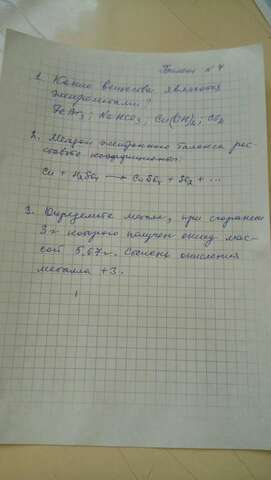 Билет № 4
1. Какие вещества являются
электролитами?
NaHCO3; Cu(OH)2;
2. Методом электронного баланса рас-
ставьте коэффициенты:
Cu + H2SO4 → CuSO4 + SO2 + ...
3. Определите металл, при сгорании
3 г которого получен оксид мас-
сой 5,67 г. Степень окисления
металла +3.